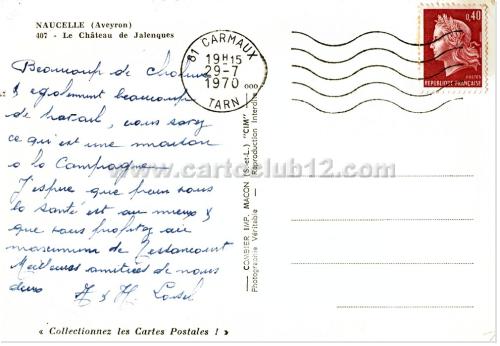 NAUCELLE (Aveyron)
407 - Le Château de Jalenques
Beaucoup de chaleur
& également beaucoup
de travail, vous savez
ce qui est une maison
à la Campagne
J'espère que pour vous
la santé est au mieux &
que vous profitez au
maximum de
Meilleures amitiés de nous
deux A & H
« Collectionnez les Cartes Postales ! »
81 CARMAUX
19H15
29-7
1970
TARN
0,40
POSTES
REPUBLIQUE FRANÇAISE
COMBIER IMP. MACON (S.-et-L.) "CIM"
Photographie Véritable - Reproduction Interdite
www.cartoclub12.com